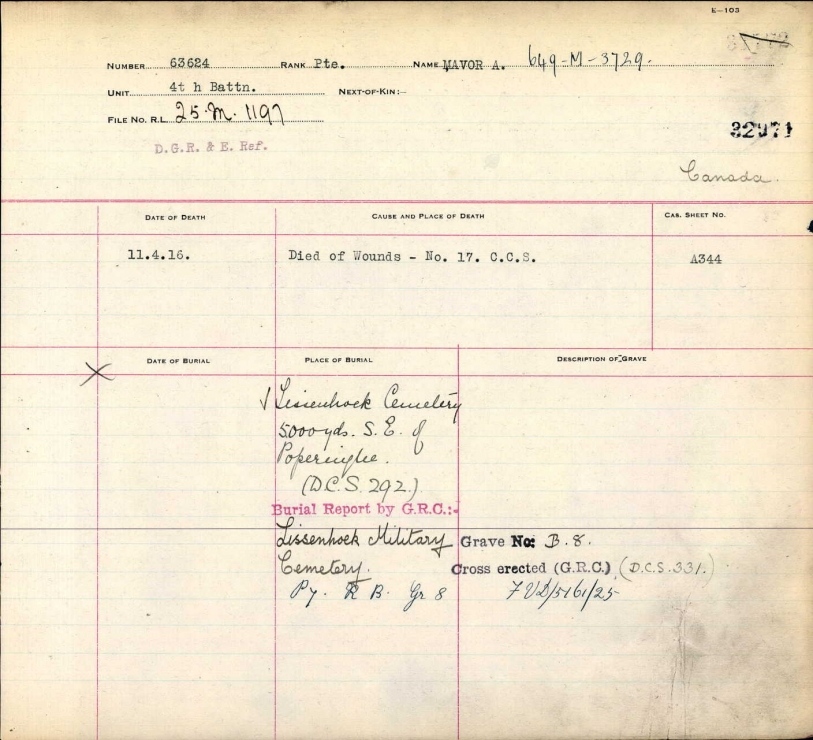 E—103
NUMBER 63624 RANK Pte. NAME MAVOR A. 649-M-3729.
UNIT 4t h Battn. NEXT-OF-KIN:—
FILE NO. R.L. 25-M. 1197
32971
D.G.R. & E. Ref.
Canada.
DATE OF DEATH CAUSE AND PLACE OF DEATH CAS. SHEET NO.
11.4.16. Died of Wounds - No. 17. C.C.S. A344
DATE OF BURIAL PLACE OF BURIAL DESCRIPTION OF GRAVE
Lissenhoek Cemetery
5000yds. S.E. of
Poperinghe.
(D.C.S. 292.)
Burial Report by G.R.C.:-
Lissenhoek Military Grave No: B.8.
Cemetery. Cross erected (G.R.C.) (D.C.S.331.)
R B. Gr 8 /5161/25